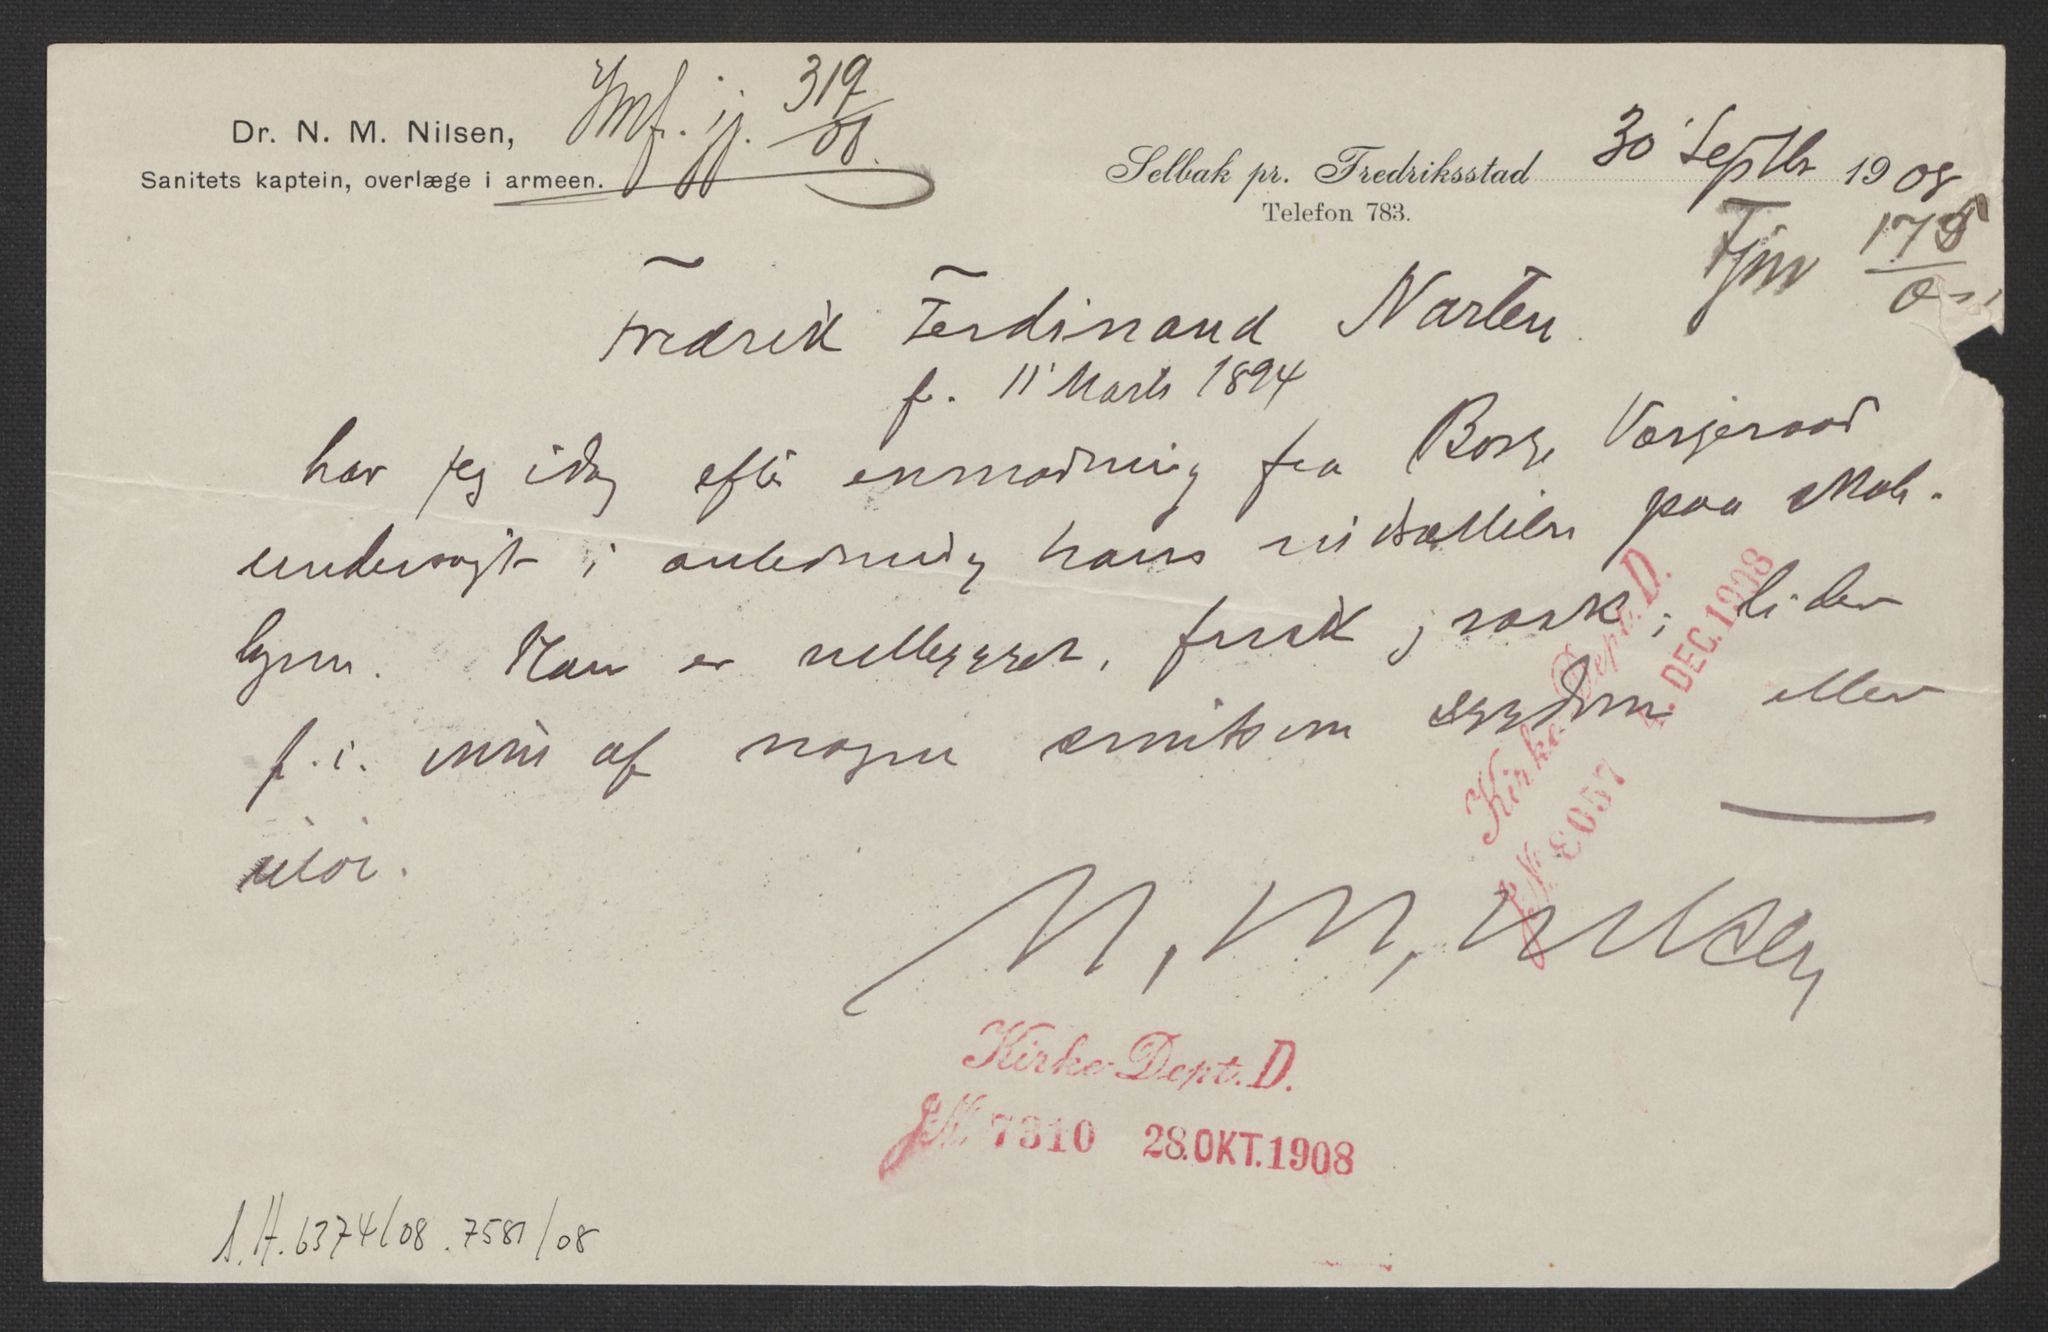 Dr. N. M. Nilsen,
Sanitets kaptein, overlæge i armeen.
319
Selbak pr. Fredriksstad 30' Septbr 1908
Telefon 783.
Fredrik Ferdinand Narten
f. 11' Marts 1894
har jeg idag efter anmodning fra Borge Værgeraad
undersøgt i anledning hans indsættelse paa skole-
hjem. Han er velbygget, frisk, rask; lider
f. i. ikke af nogen smitsom sygdom eller
utøi.
N. M. Nilsen
Kirke-Dept. D.
J.№ 7310 28.OKT.1908
Kirke-Dept. D.
J.№ 8057 4.DEC.1908
A.H. 6374/08. 7581/08